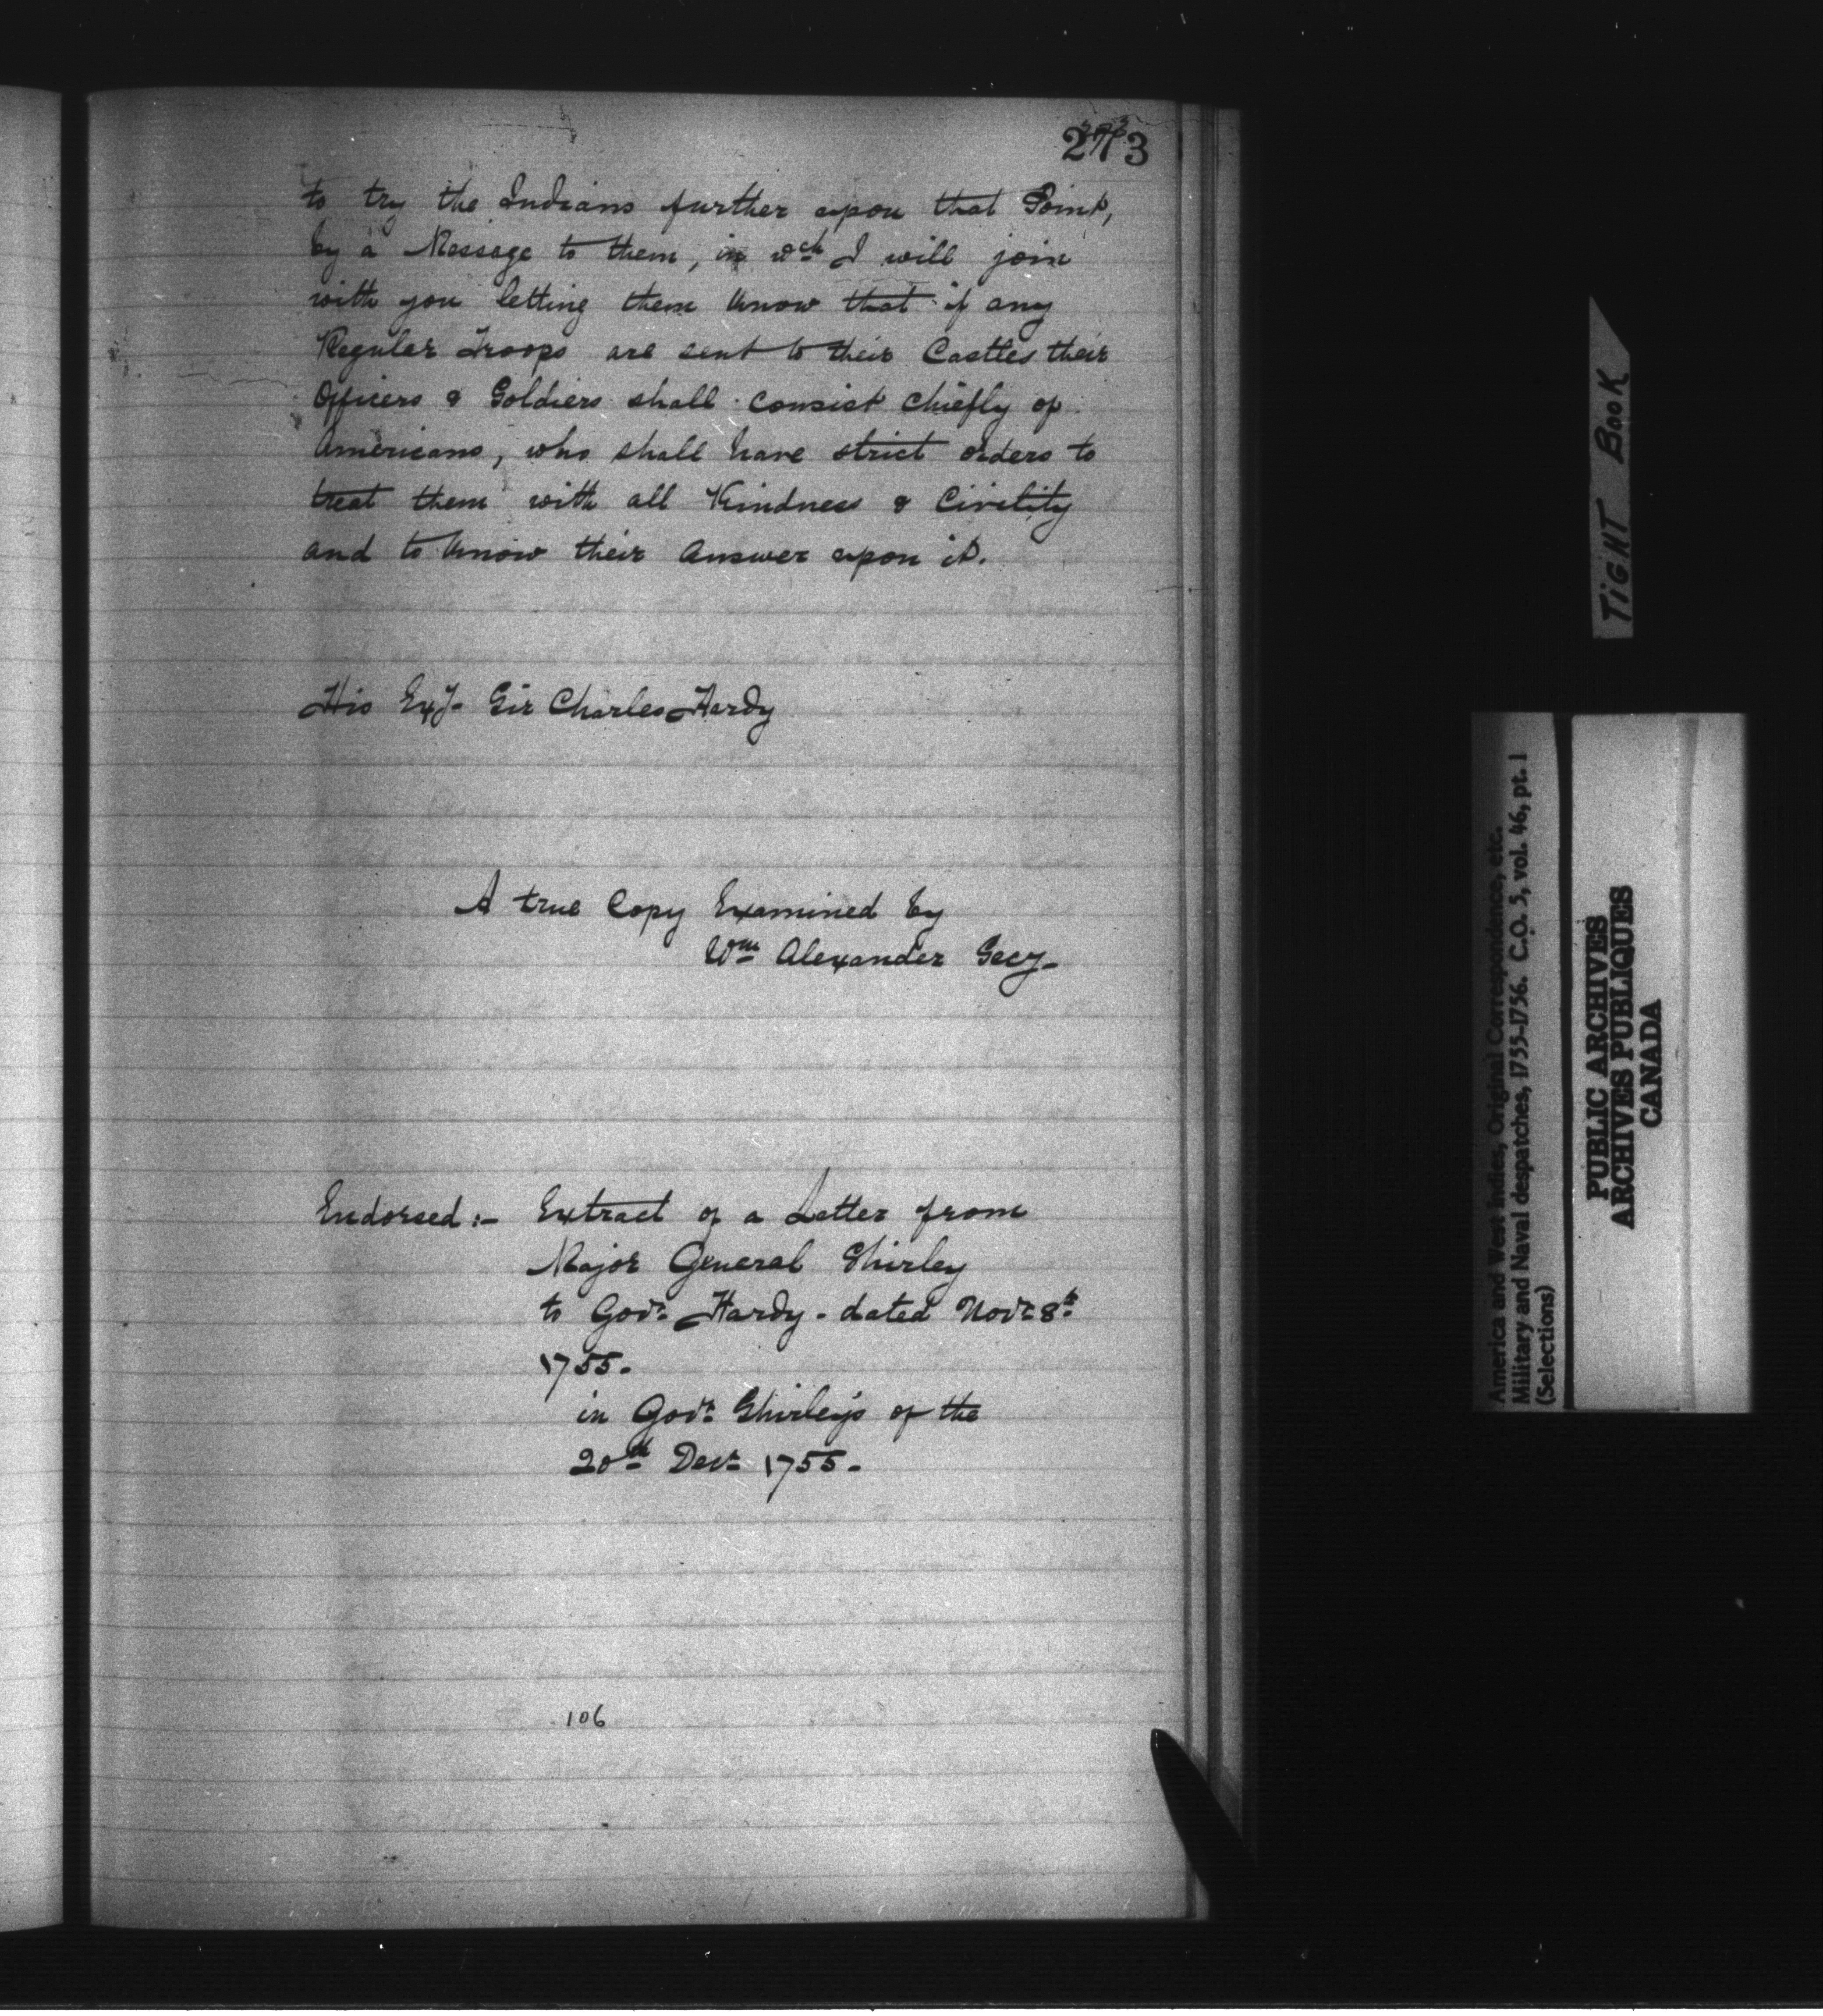 273
to try the Indians further upon that Point,
by a Message to them, in wch I will join
with you letting them know that if any
Regular Troops are sent to their Castles their
Officers & Soldiers shall consist chiefly of
Americans, who shall have strict orders to
treat them with all Kindness & Civility
and to know their Answer upon it.
His Exy. Sir Charles Hardy
A true Copy Examined by
Wm Alexander Secy-
Endorsed:- Extract of a Letter from
Major General Shirley
to Govr. Hardy. dated Novr. 8th
1755.
in Govr. Shirley's of the
20th Decr. 1755.
106
TiGHT BooK
America and West Indies, Original Correspondence, etc.
Military and Naval despatches, 1755-1756. C.O. 5, vol. 46, pt. 1
(Selections)
PUBLIC ARCHIVES
ARCHIVES PUBLIQUES
CANADA